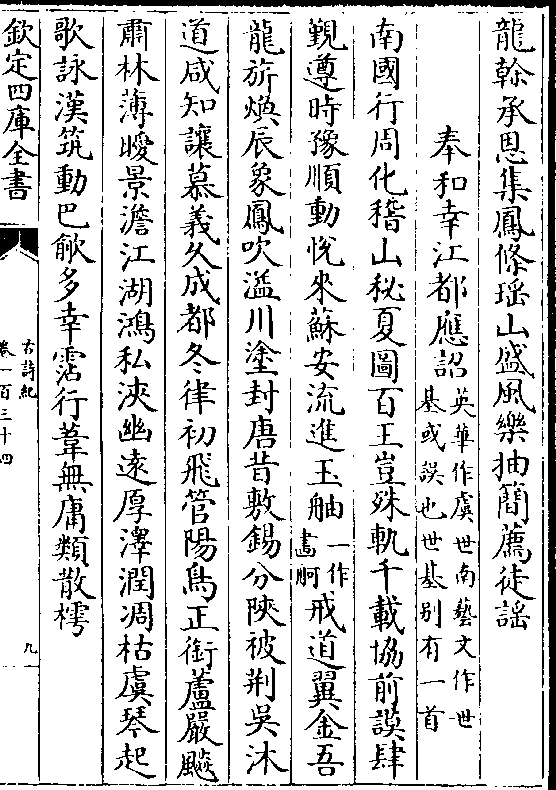 龍榦承恩集鳳條瑶山盛風樂抽簡薦徒謡
奉和幸江都應詔英華作虞世南藝文作世
基或誤也世基别有一首
南國行周化稽山秘夏圖百王豈殊軌千載協前謨肆
覲遵時豫順動悅來蘇安流進玉舳一作
畫舸戒道翼金吾
龍旂煥辰象鳳吹溢川塗封唐昔敷錫分陝被荆吳沐
道咸知讓慕義久成都冬律初飛管陽鳥正銜蘆嚴飈
肅林薄曖景澹江湖鴻私浹幽遠厚澤潤凋枯虞琴起
歌詠漢筑動巴歈多幸霑行葦無庸類散樗
欽定四庫全書
古詩紀
卷一百三十四
九